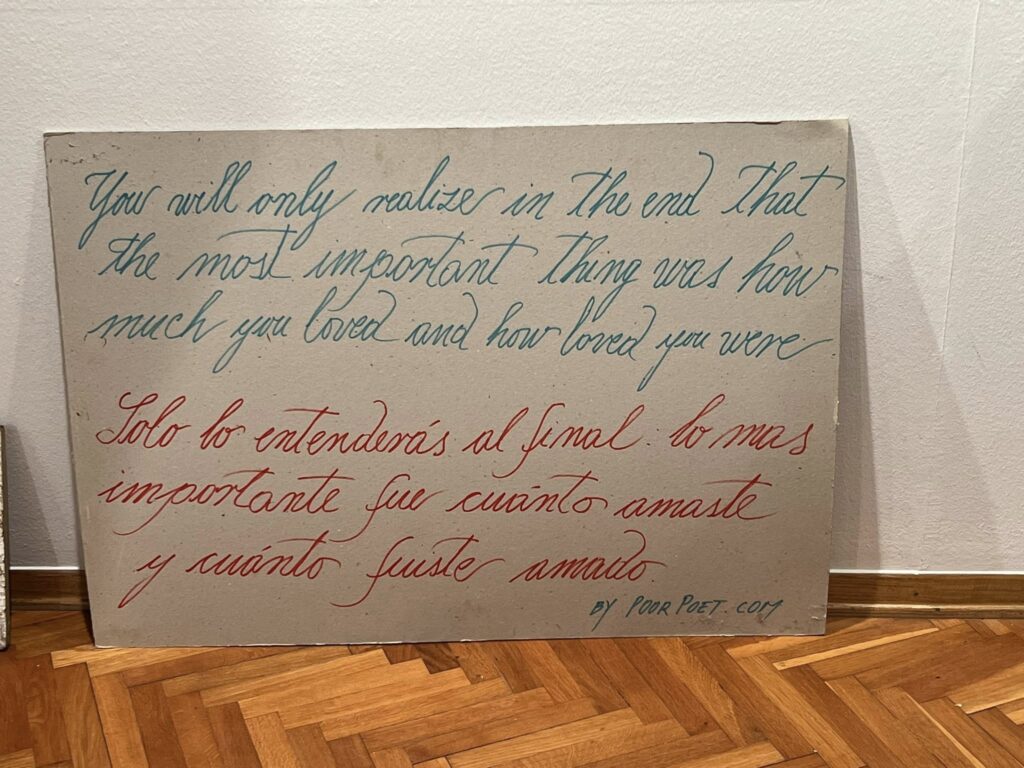 You will only realize in the end that
the most important thing was how
much you loved and how loved you were
Solo lo entenderás al final lo mas
importante fue cuánto amaste
y cuánto fuiste amado
BY POOR POET. COM